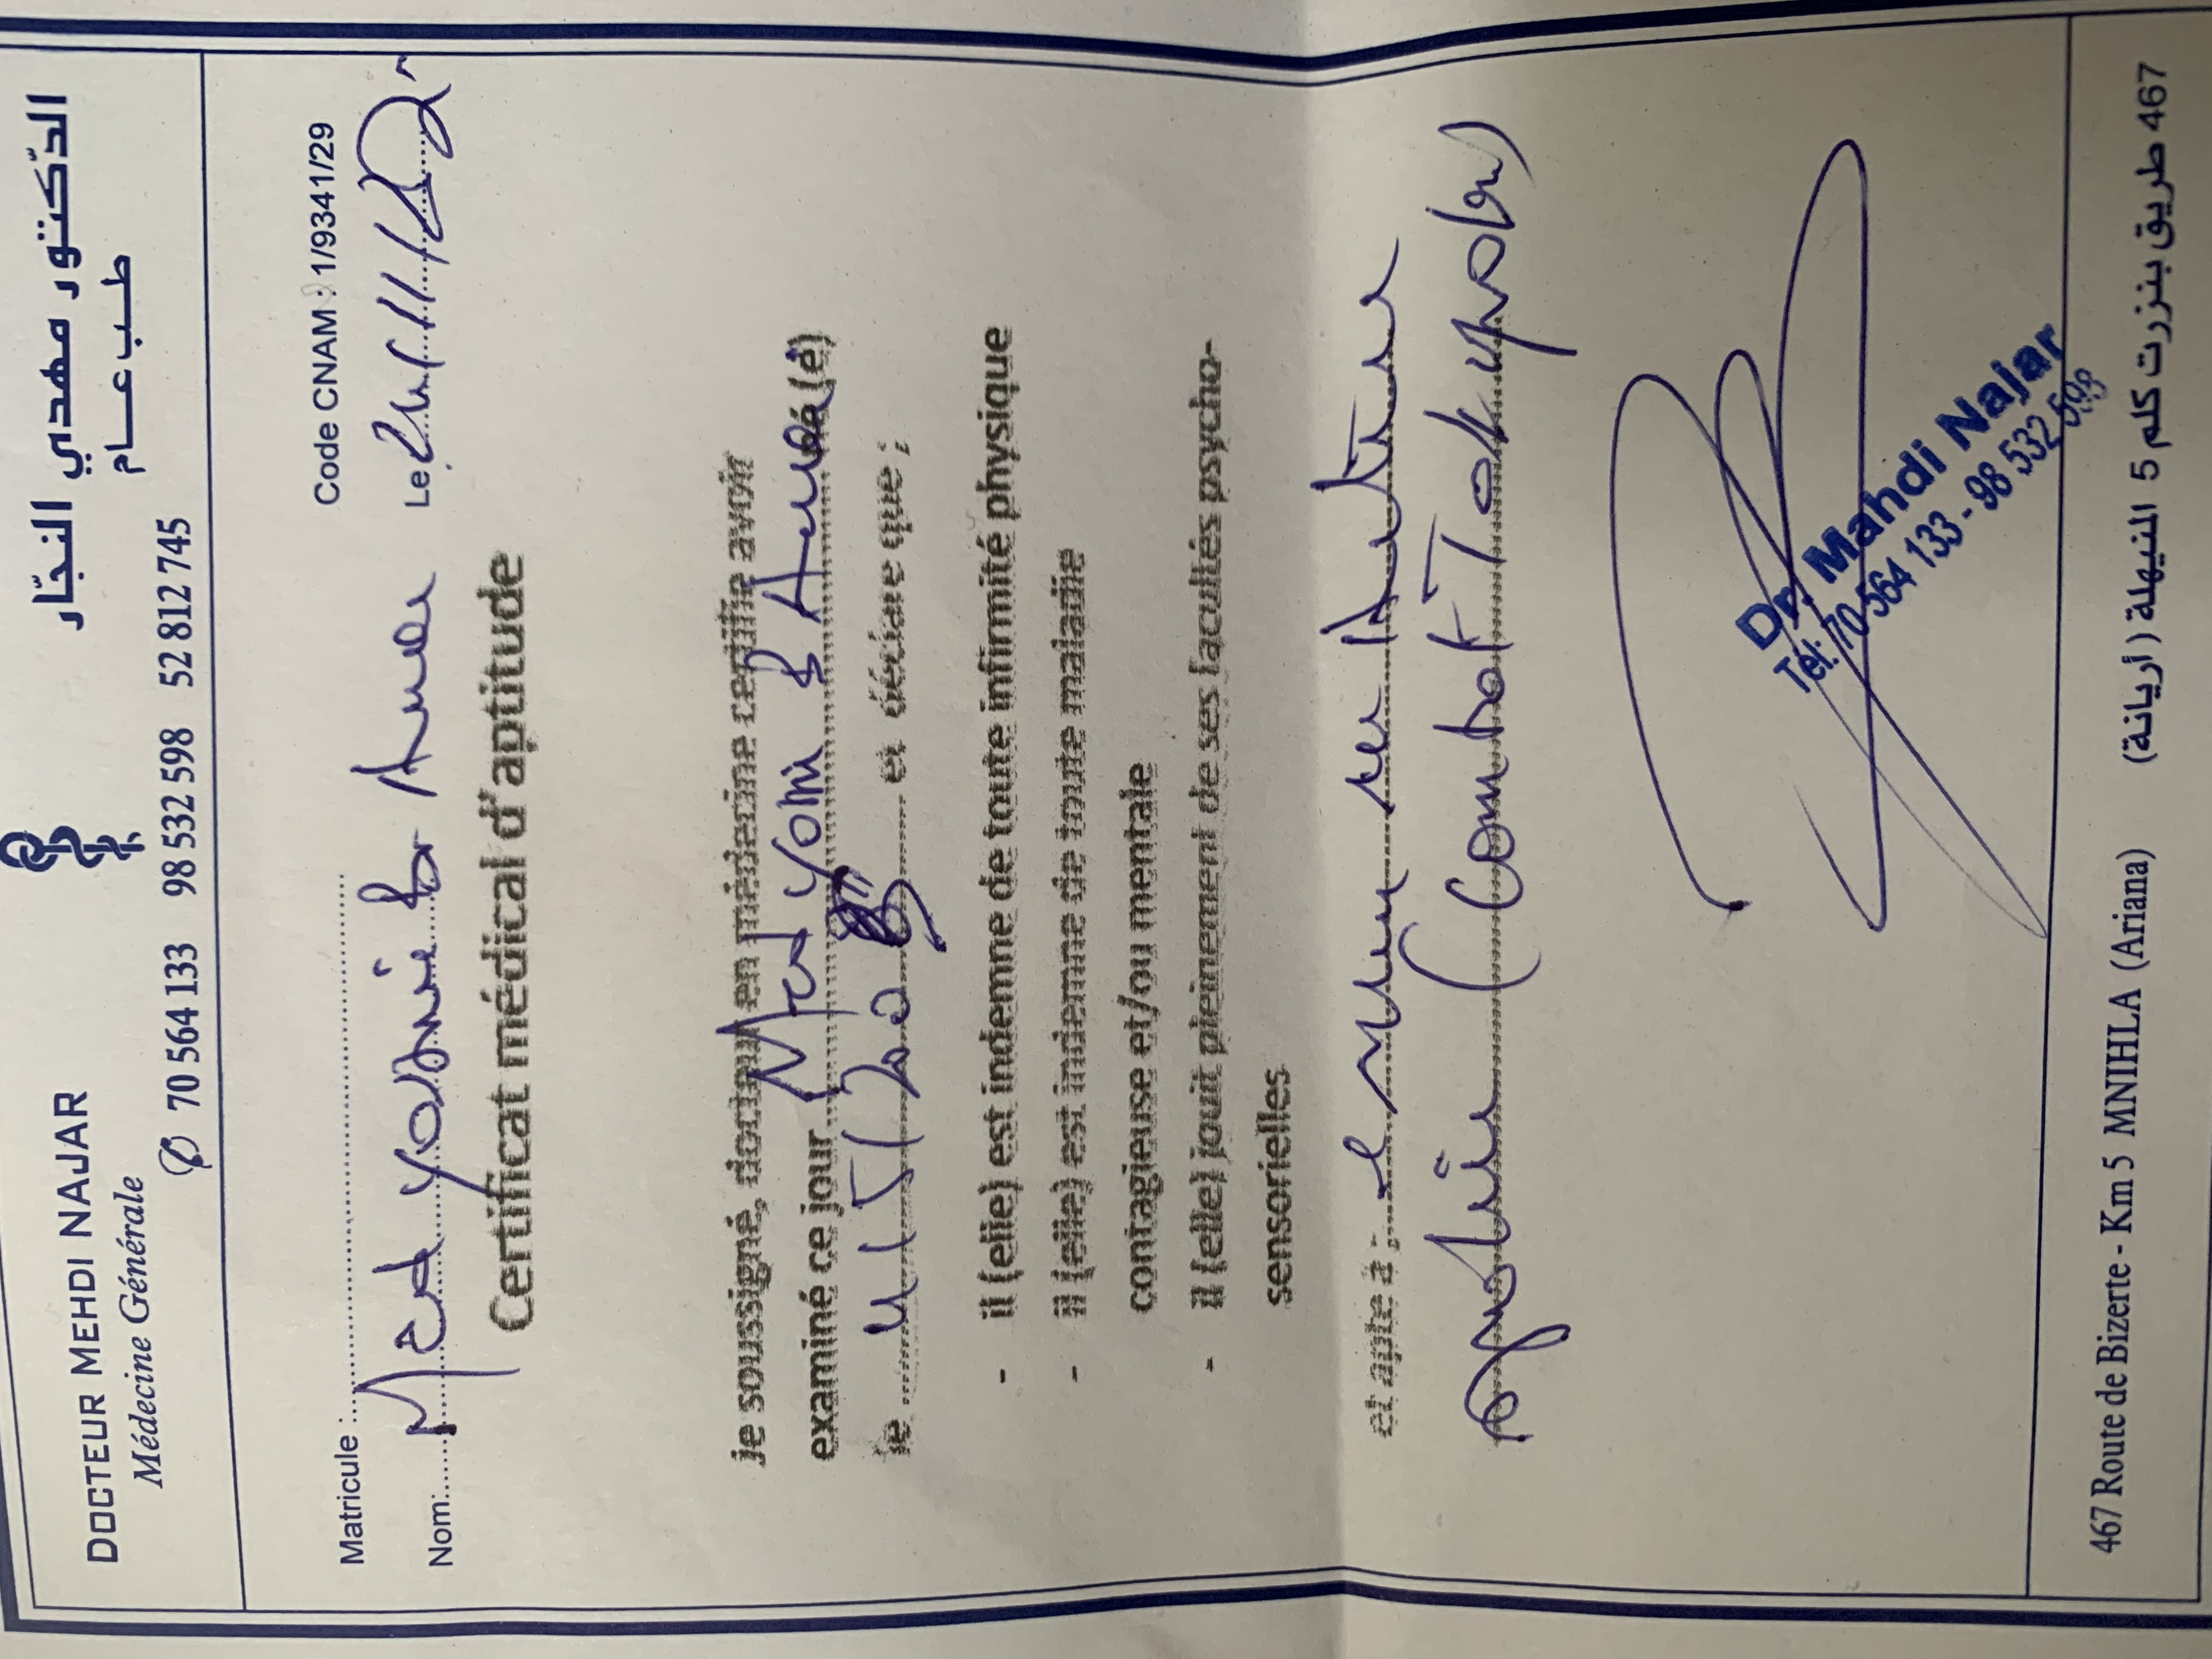 DOCTEUR MEHDI NAJAR
Médecine Générale
الدّكتور مهدي النجّار
طب عام
70 564 133 98 532 598 52 812 745
Code CNAM : 1/9341/29
Matricule :
Nom: Med yassine
Le
Certificat médical d'aptitude
je soussigné, docteur en médecine certifie avoir
examiné ce jour Med né (é)
le et déclare que :
- il (elle) est indemne de toute infirmité physique
- il (elle) est indemne de toute maladie
contagieuse et/ou mentale
- il (elle) jouit pleinement de ses facultés psycho-
sensorielles
et apte a :
(Combat
Dr. Mahdi Najar
Tél: 70 564 133 - 98 532 598
467 Route de Bizerte - Km 5 MNIHLA (Ariana)
467 طريق بنزرت كلم 5 المنيهلة (أريانة)